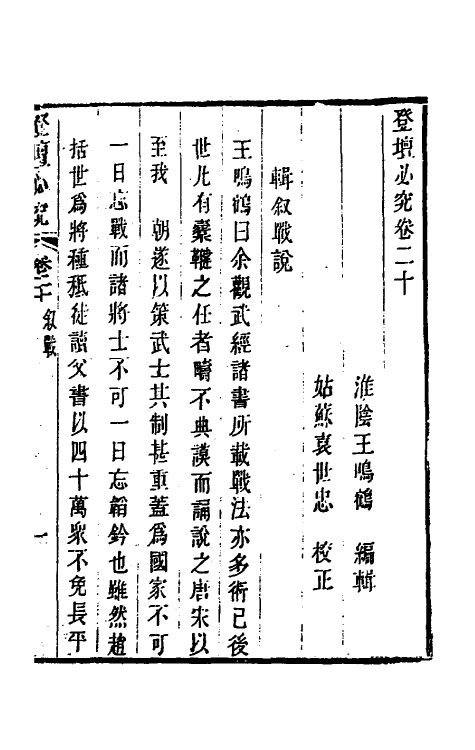 登壇必究卷二十
淮陰王鳴鶴　編輯
姑蘇袁世忠　校正
輯叙戰說
王鳴鶴曰余觀武經諸書所載戰法亦多術已後
世凡有櫜鞬之任者疇不典謨而誦說之唐宋以
至我　朝遂以策武士其制甚重蓋爲國家不可
一日忘戰而諸將士不可一日忘韜鈐也雖然趙
括世爲將種秪徒讀父書以四十萬衆不免長平
登壇必究　卷二十　叙戰　一